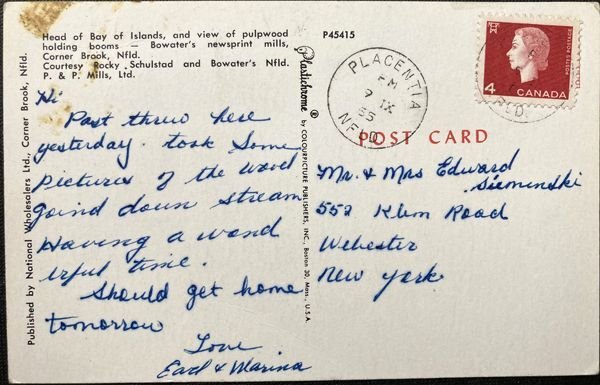 Head of Bay of Islands, and view of pulpwood
holding booms — Bowater's newsprint mills,
Corner Brook, Nfld.
Courtesy Rocky Schulstad and Bowater's Nfld.
P. & P. Mills, Ltd.
P45415
Hi
Past threw here
yesterday. took some
pictures of the wood
goind down stream
Having a wond
erful time.
Should get home
tomorrow
Love
Earl & Marina
Published by National Wholesalers Ltd., Corner Brook, Nfld.
Plastichrome ® by COLOURPICTURE PUBLISHERS, INC., Boston 30, Mass., U.S.A.
PLACENTIA
PM
7 IX
65
NFLD
POSTES POSTAGE
4 CANADA
NFLD.
POST CARD
Mr. & Mrs Edward
Sieminski
552 Klem Road
Webester
New york